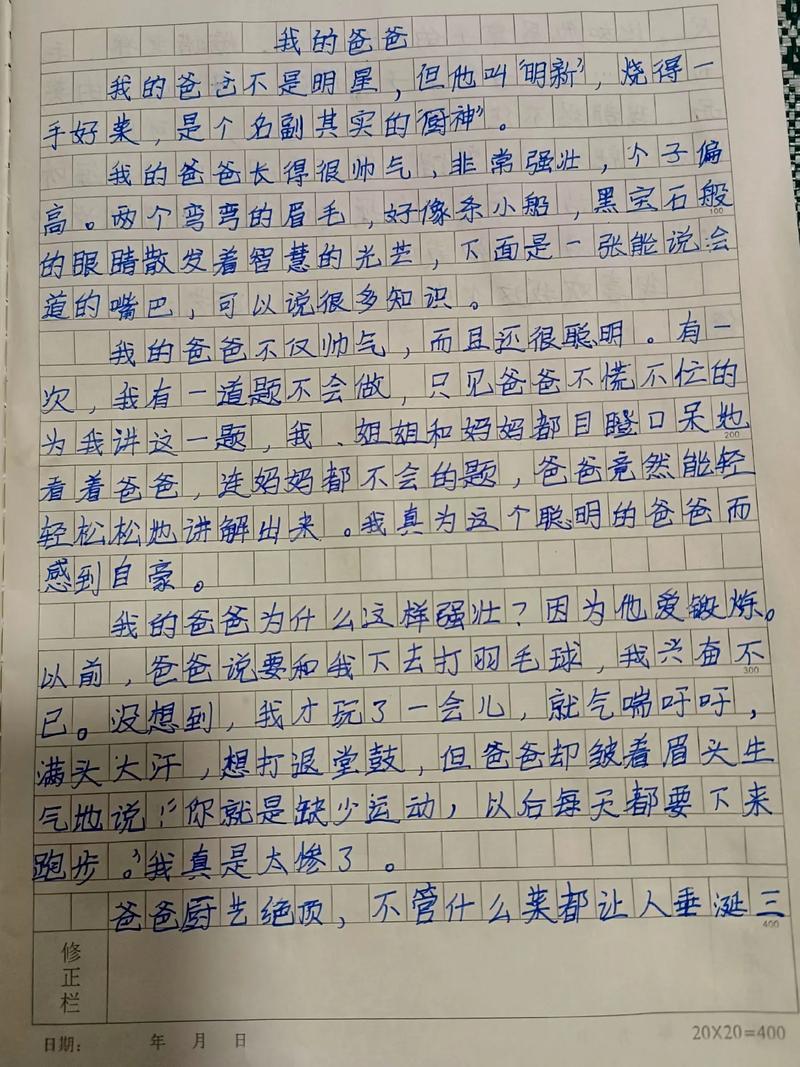 我的爸爸
我的爸爸不是明星，但他叫“明新”，烧得一
手好菜，是个名副其实的“厨神”。
我的爸爸长得很帅气，非常强壮，个子偏
高。两个弯弯的眉毛，好像条小船，黑宝石般
100
的眼睛散发着智慧的光芒，下面是一张能说会
道的嘴巴，可以说很多知识。
我的爸爸不仅帅气，而且还很聪明。有一
次，我有一道题不会做，只见爸爸不慌不忙的
为我讲这一题，我、姐姐和妈妈都目瞪口呆地
200
看着爸爸，连妈妈都不会的题，爸爸竟然能轻
轻松松地讲解出来。我真为这个聪明的爸爸而
感到自豪。
我的爸爸为什么这样强壮？因为他爱锻炼。
以前，爸爸说要和我下去打羽毛球，我兴奋不
300
已。没想到，我才玩了一会儿，就气喘吁吁，
满头大汗，想打退堂鼓，但爸爸却皱着眉头生
气地说：“你就是缺少运动，以后每天都要下来
跑步。”我真是太惨了。
爸爸厨艺绝顶，不管什么菜都让人垂涎三
400
修正栏
日期： 年 月 日
20X20=400